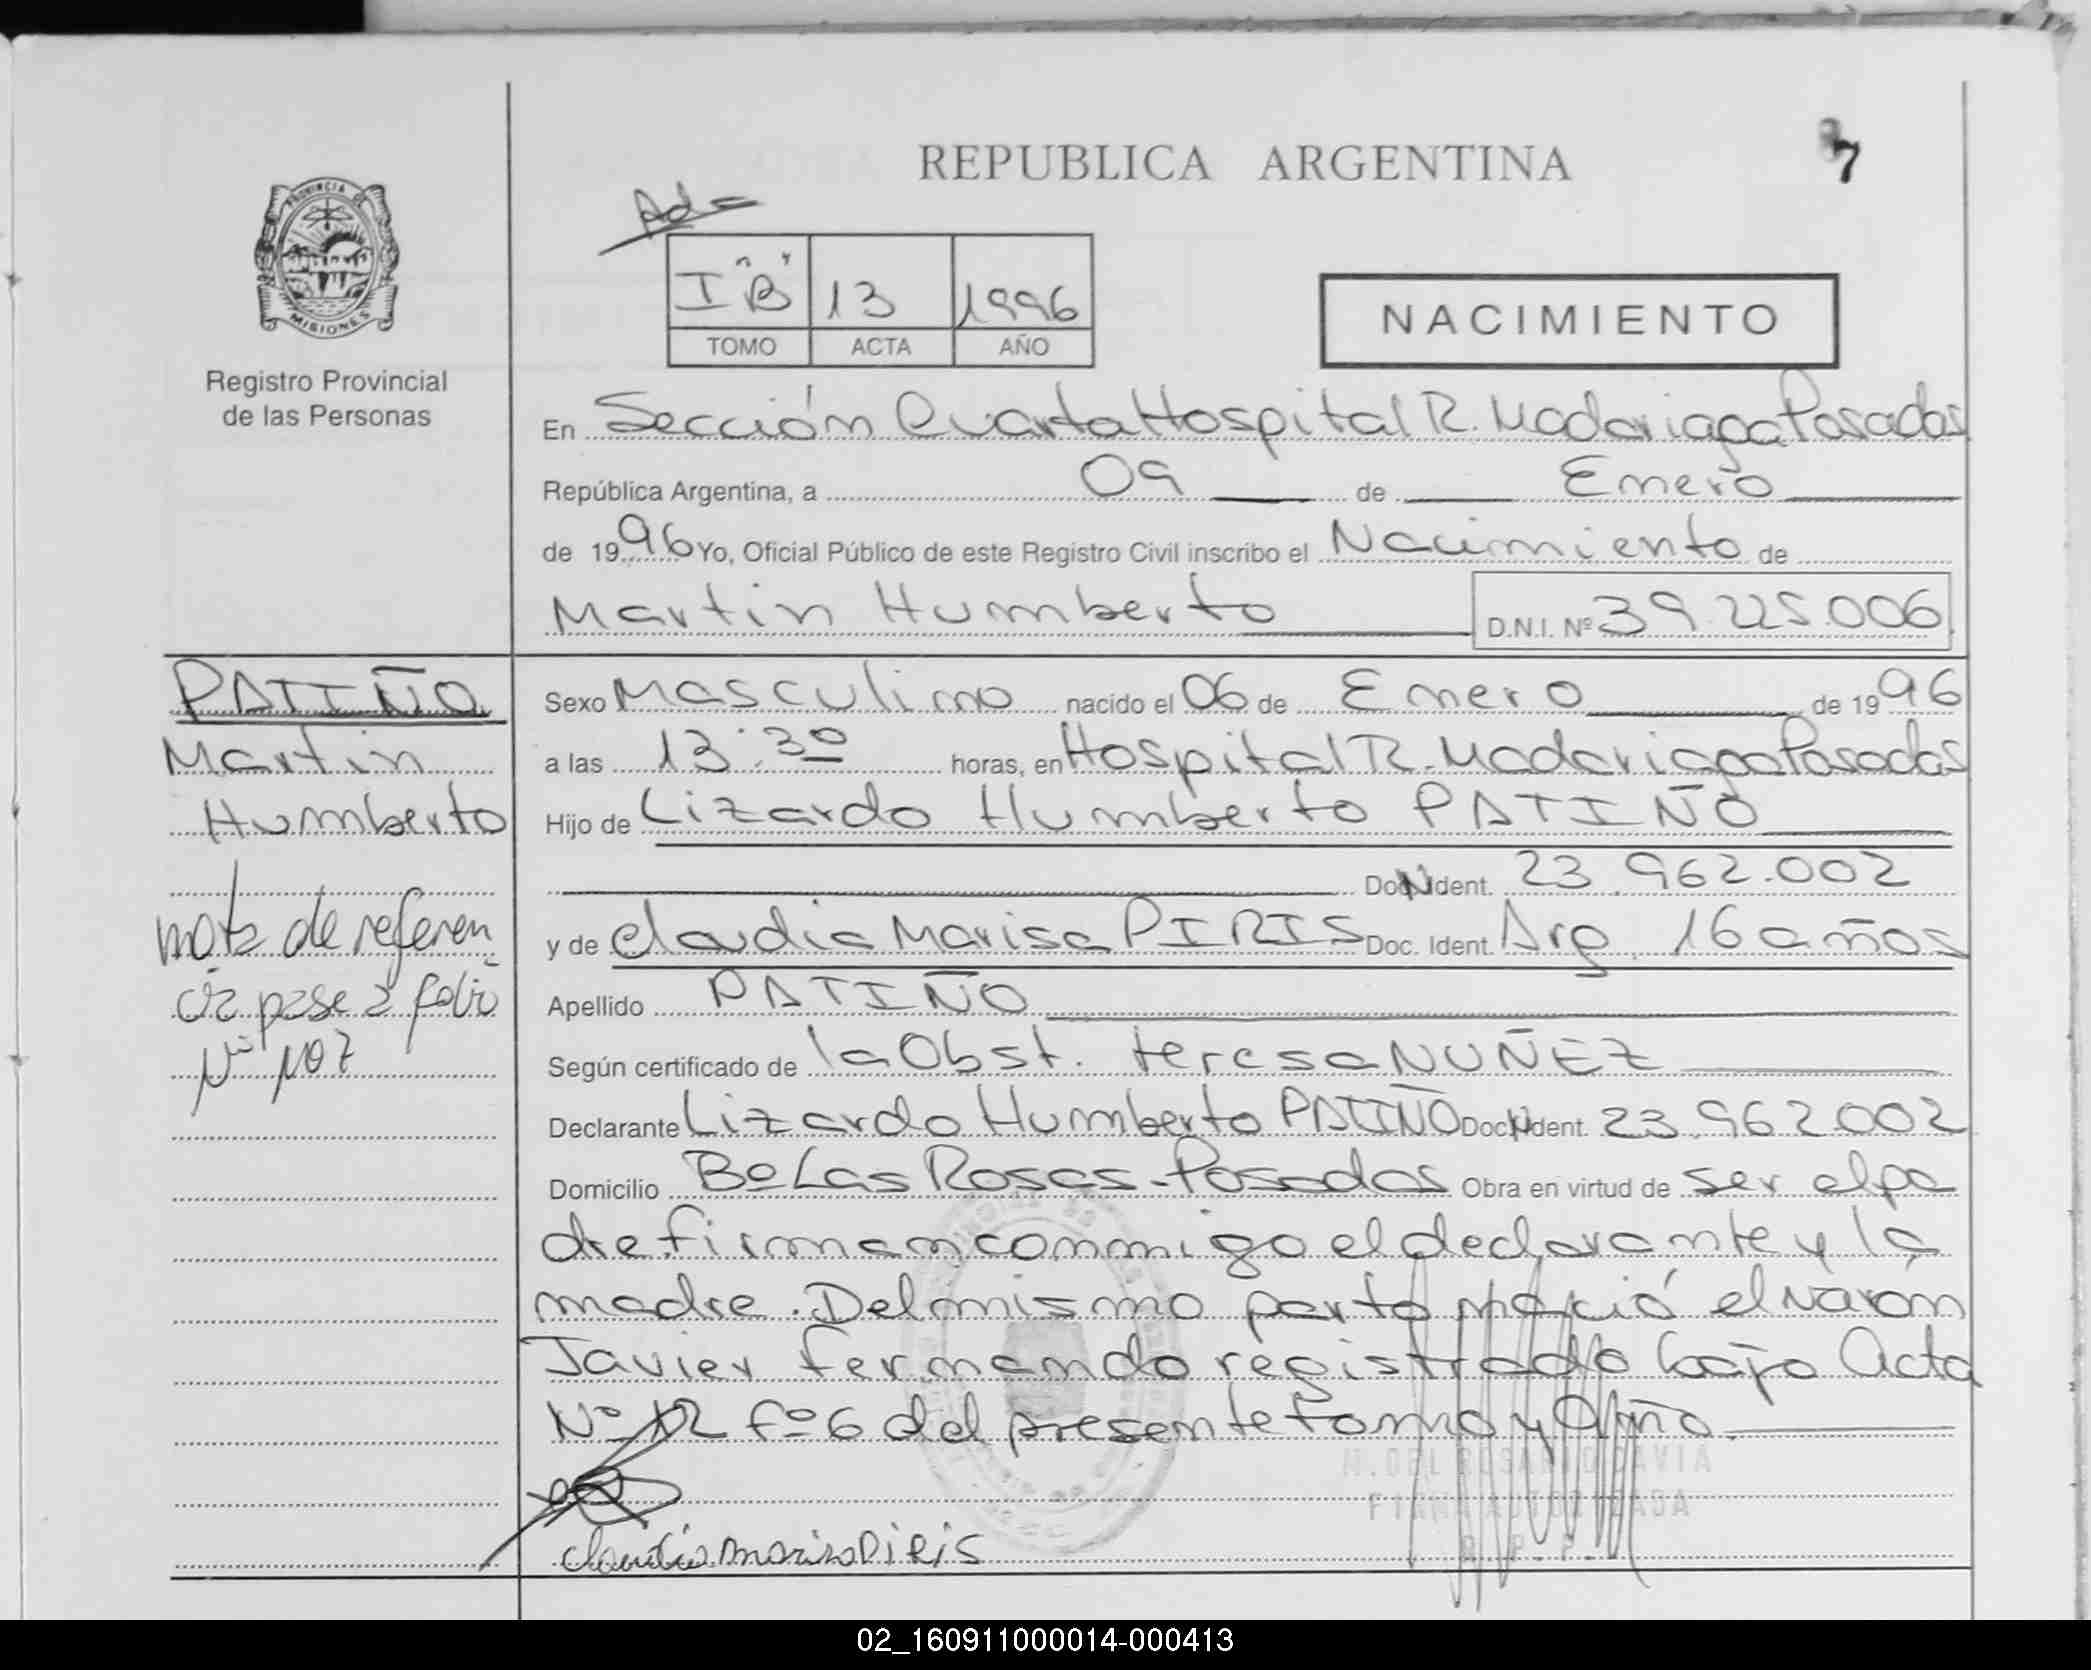 REPUBLICA ARGENTINA
7
PROVINCIA DE
MISIONES
Registro Provincial
de las Personas
Ad
I "B" 13 1996
TOMO ACTA AÑO
NACIMIENTO
En Sección Cuarta Hospital R. Madariaga Posadas
República Argentina, a 09 de Enero
de 1996 Yo, Oficial Público de este Registro Civil inscribo el Nacimiento de
Martin Humberto D.N.I. Nº 39.225.006
PATIÑO
Martin
Humberto
nota de referen
cia pase a folio
Nº 107
Sexo Masculino nacido el 06 de Enero de 1996
a las 13:30 horas, en Hospital R. Madariaga Posadas
Hijo de Lizardo Humberto PATIÑO
Doc. Ident. 23.962.002
y de Claudia Marisa PIRIS Doc. Ident. Arg. 16 años
Apellido PATIÑO
Según certificado de la Obst. teresa NUÑEZ
Declarante Lizardo Humberto PATIÑO Doc. Ident. 23.962.002
Domicilio Bº Las Rosas - Posadas Obra en virtud de ser el pa
dre firman conmigo el declarante y la
madre. Del mismo parto nació el varón
Javier fernando registrado bajo Acta
Nº 12 fº 6 del presente tomo y Año.
M. DEL ROSARIO GAVIA
FIRMA AUTORIZADA
R. P. P.
Claudia Marisa PIRIS
02_160911000014-000413